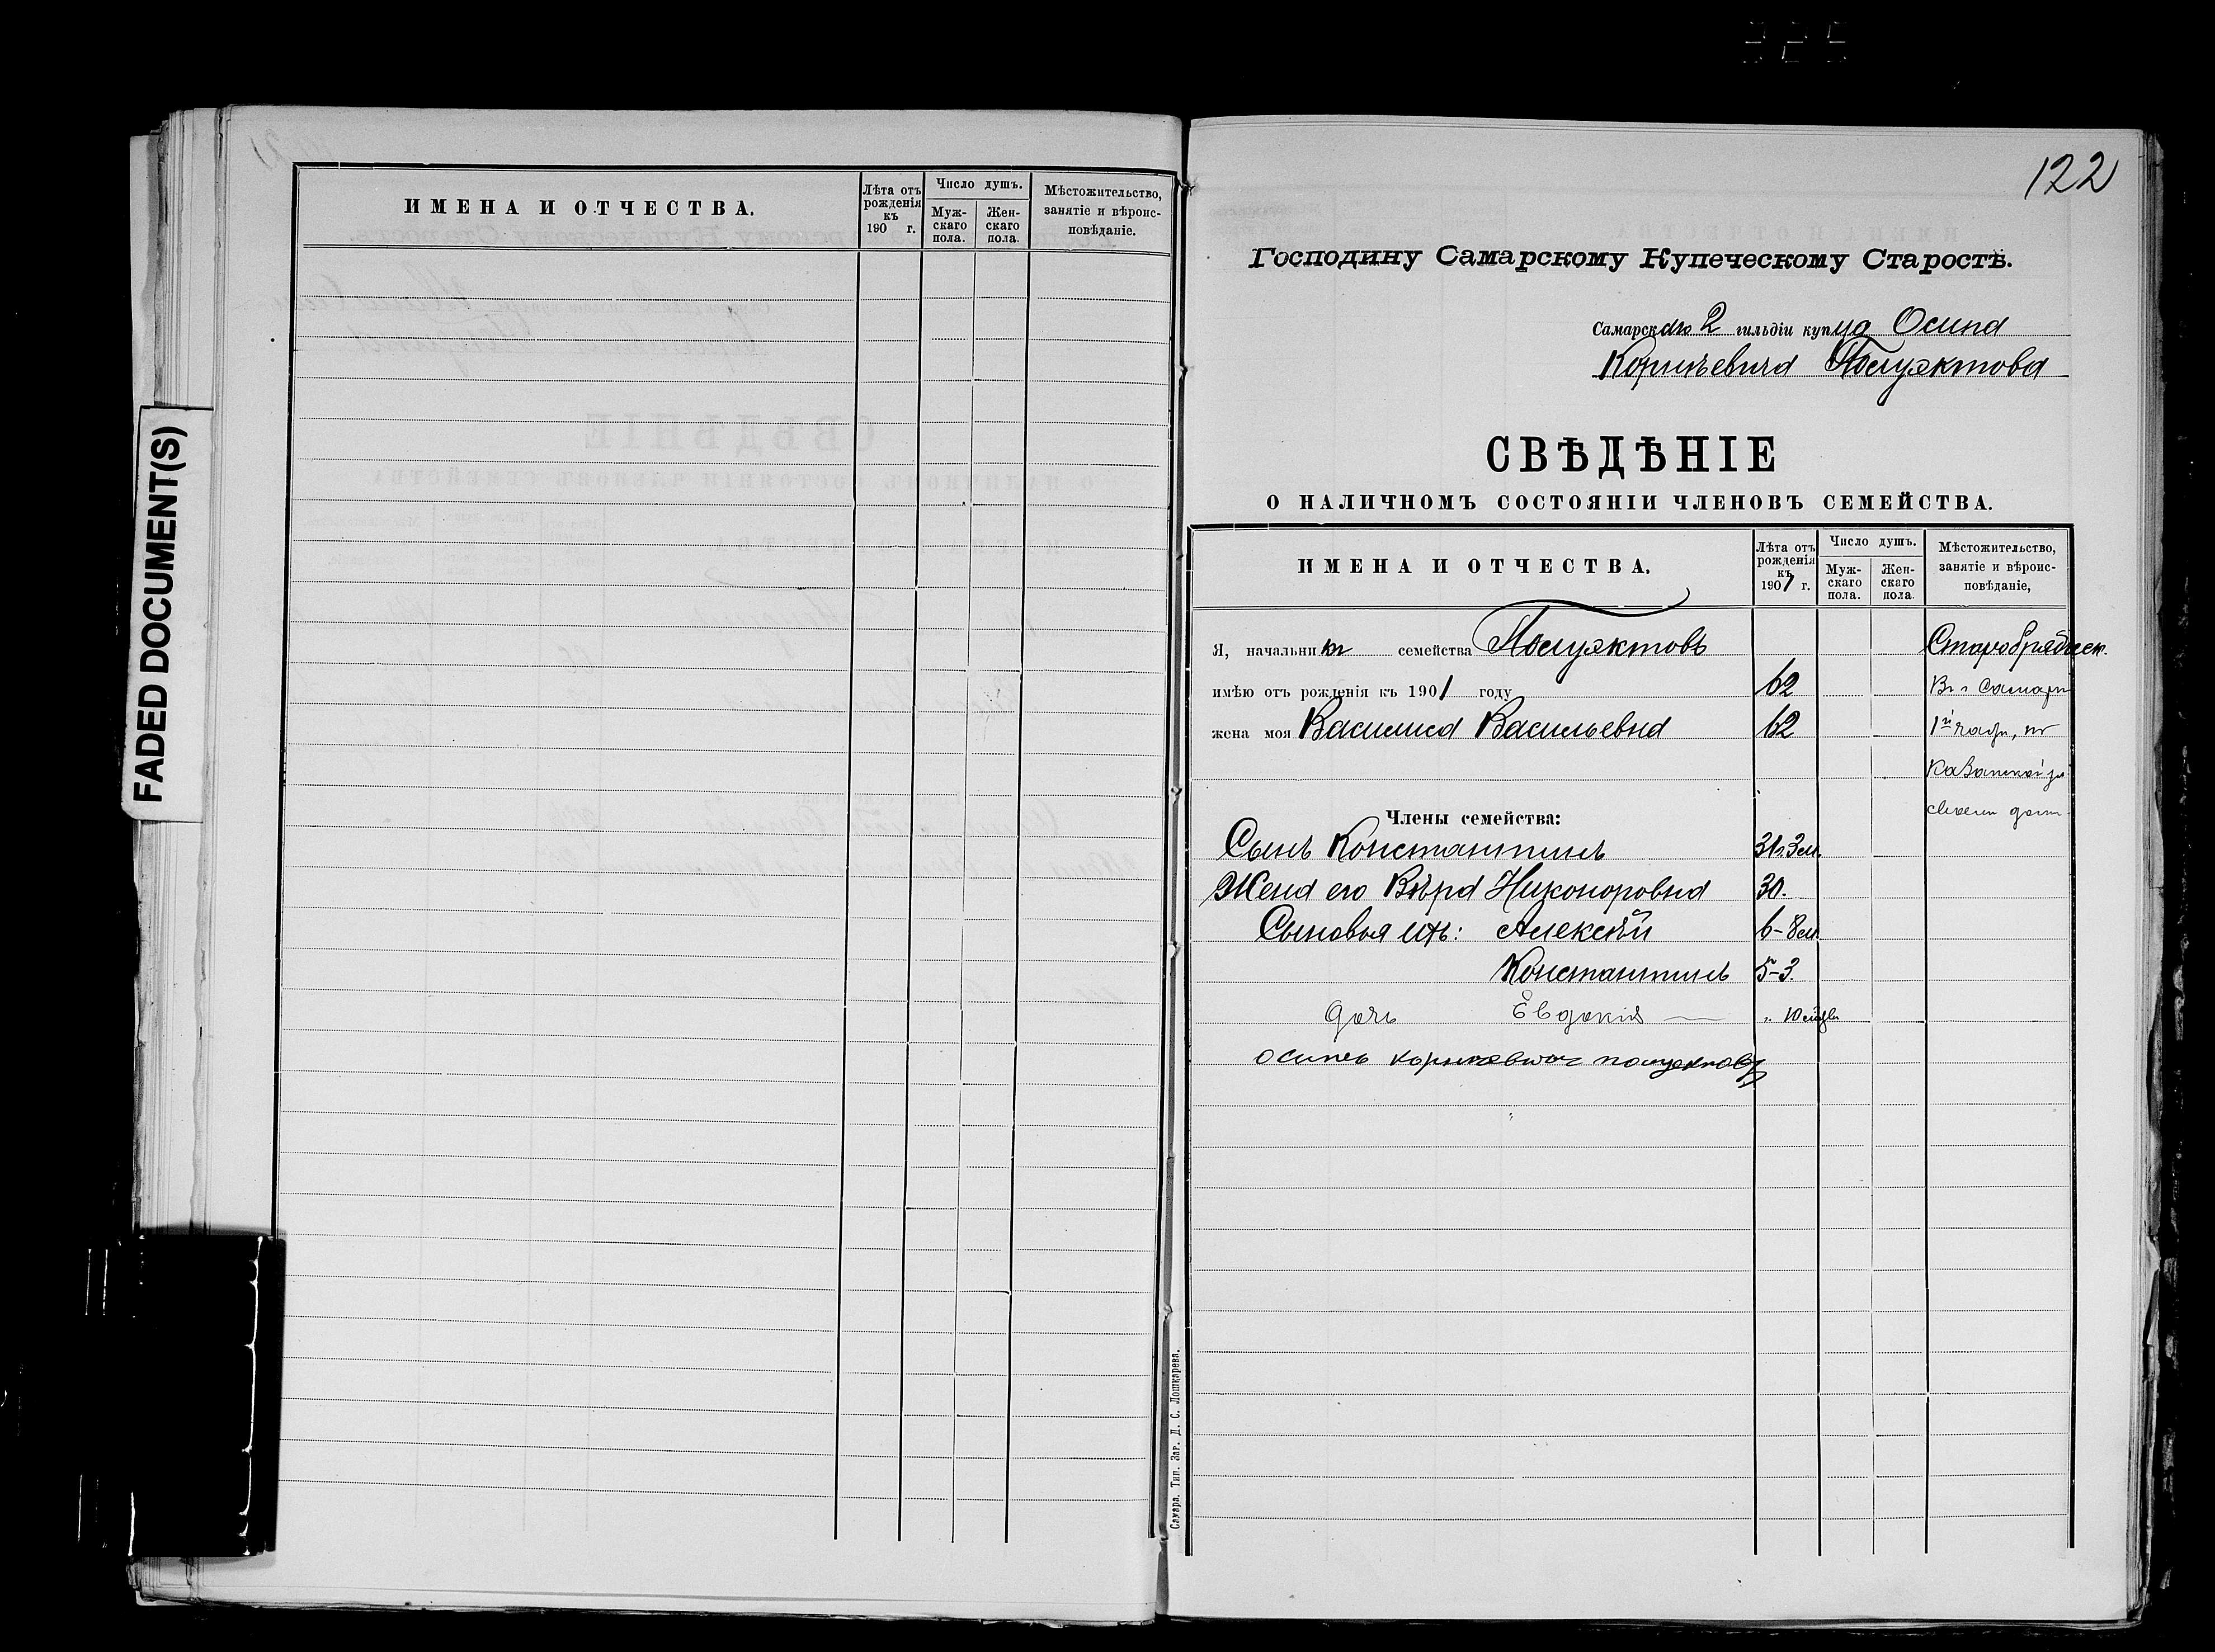 FADED DOCUMENT(S)
ИМЕНА И ОТЧЕСТВА.
Лѣта отъ рожденія къ 190 г.
Число душъ.
Мужскаго пола.
Женскаго пола.
Мѣстожительство, занятіе и вѣроисповѣданіе.
122
Господину Самарскому Купеческому Старостѣ.
Самарскаго 2 гильдіи купца Осипа
Корнѣевича Полуэктова
СВѢДѢНІЕ
О НАЛИЧНОМЪ СОСТОЯНІИ ЧЛЕНОВЪ СЕМЕЙСТВА.
ИМЕНА И ОТЧЕСТВА.
Лѣта отъ рожденія къ 1901 г.
Число душъ.
Мужскаго пола.
Женскаго пола.
Мѣстожительство, занятіе и вѣроисповѣданіе,
Я, начальникъ семейства Полуэктовъ
имѣю отъ рожденія къ 1901 году 62 Въ г Самарѣ
жена моя Василиса Васильевна 62 1й части, по
Казанской ул
своемъ домѣ
Члены семейства:
Сынъ Константинъ 31г. 3м.
Жена его Вѣра Никоноровна 30.
Сыновья ихъ: Алексѣй 6-8м.
Константинъ 5-3.
дочь Евдокія „ 10
осипъ корнѣевичъ полуектовъ
Самара. Тип. Заг. Д. С. Лошкарева.